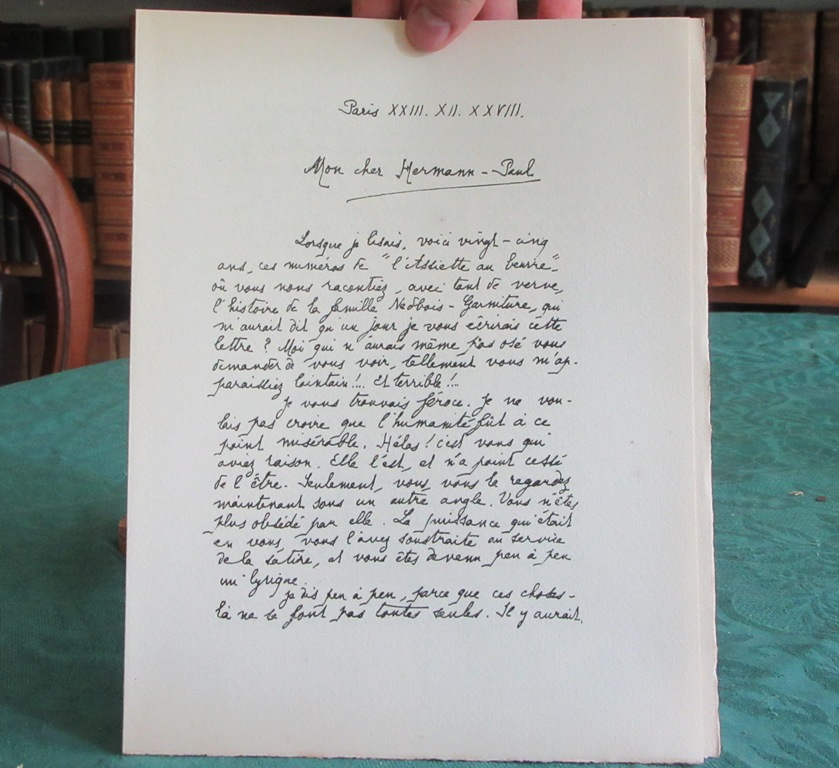 Paris XXIII. XII. XXVIII.
Mon cher Hermann-Paul
Lorsque je lisais, voici vingt-cinq
ans, ces numéros de "l'Assiette au beurre"
où vous nous racontiez, avec tant de verve,
l'histoire de la famille Nedbois-Garniture, qui
m'aurait dit qu'un jour je vous écrirais cette
lettre ? Moi qui n'aurais même pas osé vous
demander de vous voir, tellement vous m'ap-
paraissiez lointain!... Et terrible!...
Je vous trouvais féroce. Je ne vou-
lais pas croire que l'humanité fût à ce
point misérable. Hélas ! c'est vous qui
aviez raison. Elle l'est, et n'a point cessé
de l'être. Seulement, vous, vous la regardez
maintenant sous un autre angle. Vous n'êtes
plus obsédé par elle. La puissance qui était
en vous, vous l'avez soustraite au service
de la satire, et vous êtes devenu peu à peu
un lyrique.
Je dis peu à peu, parce que ces choses-
là ne se font pas toutes seules. Il y aurait